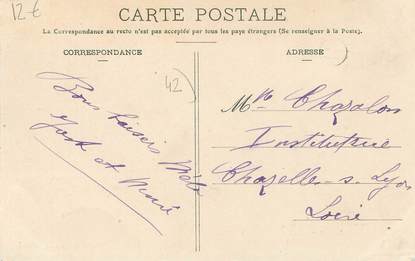 12€
CARTE POSTALE
La Correspondance au recto n'est pas acceptée par tous les pays étrangers (Se renseigner à la Poste).
CORRESPONDANCE
ADRESSE
42
Bons baisers
et Marie
Mlle Chazalon
Institutrice
Chazelles-s-Lyon
Loire